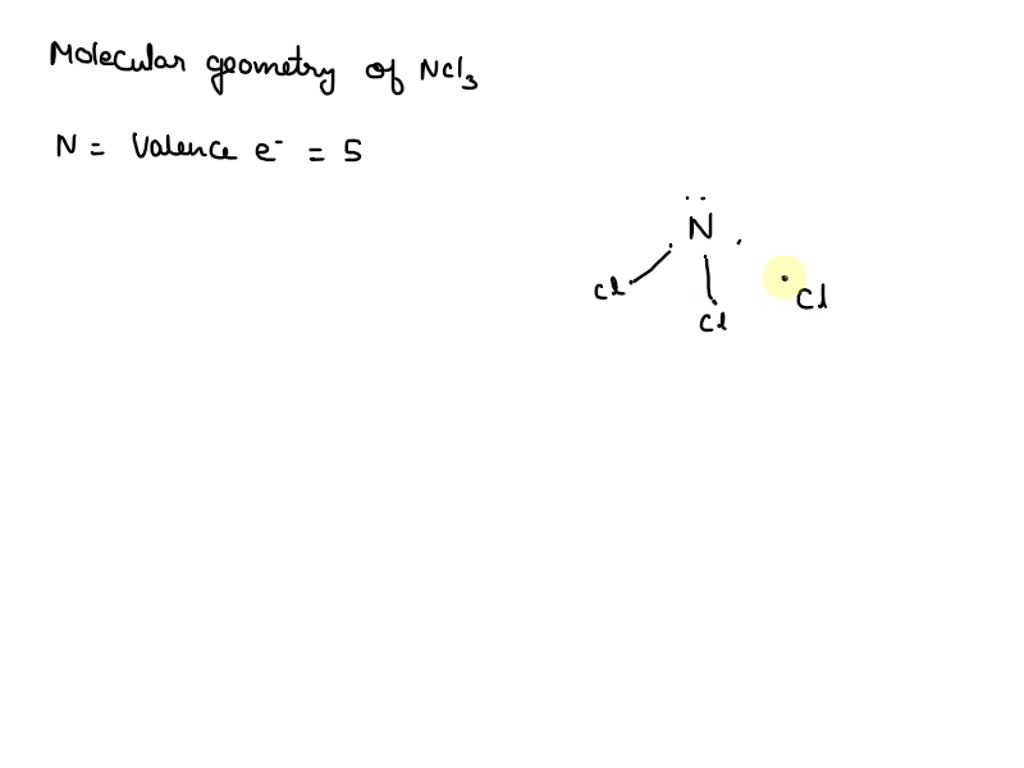 Molecular geometry of NCl₃
N = Valence e⁻ = 5
N
Cl
Cl
Cl